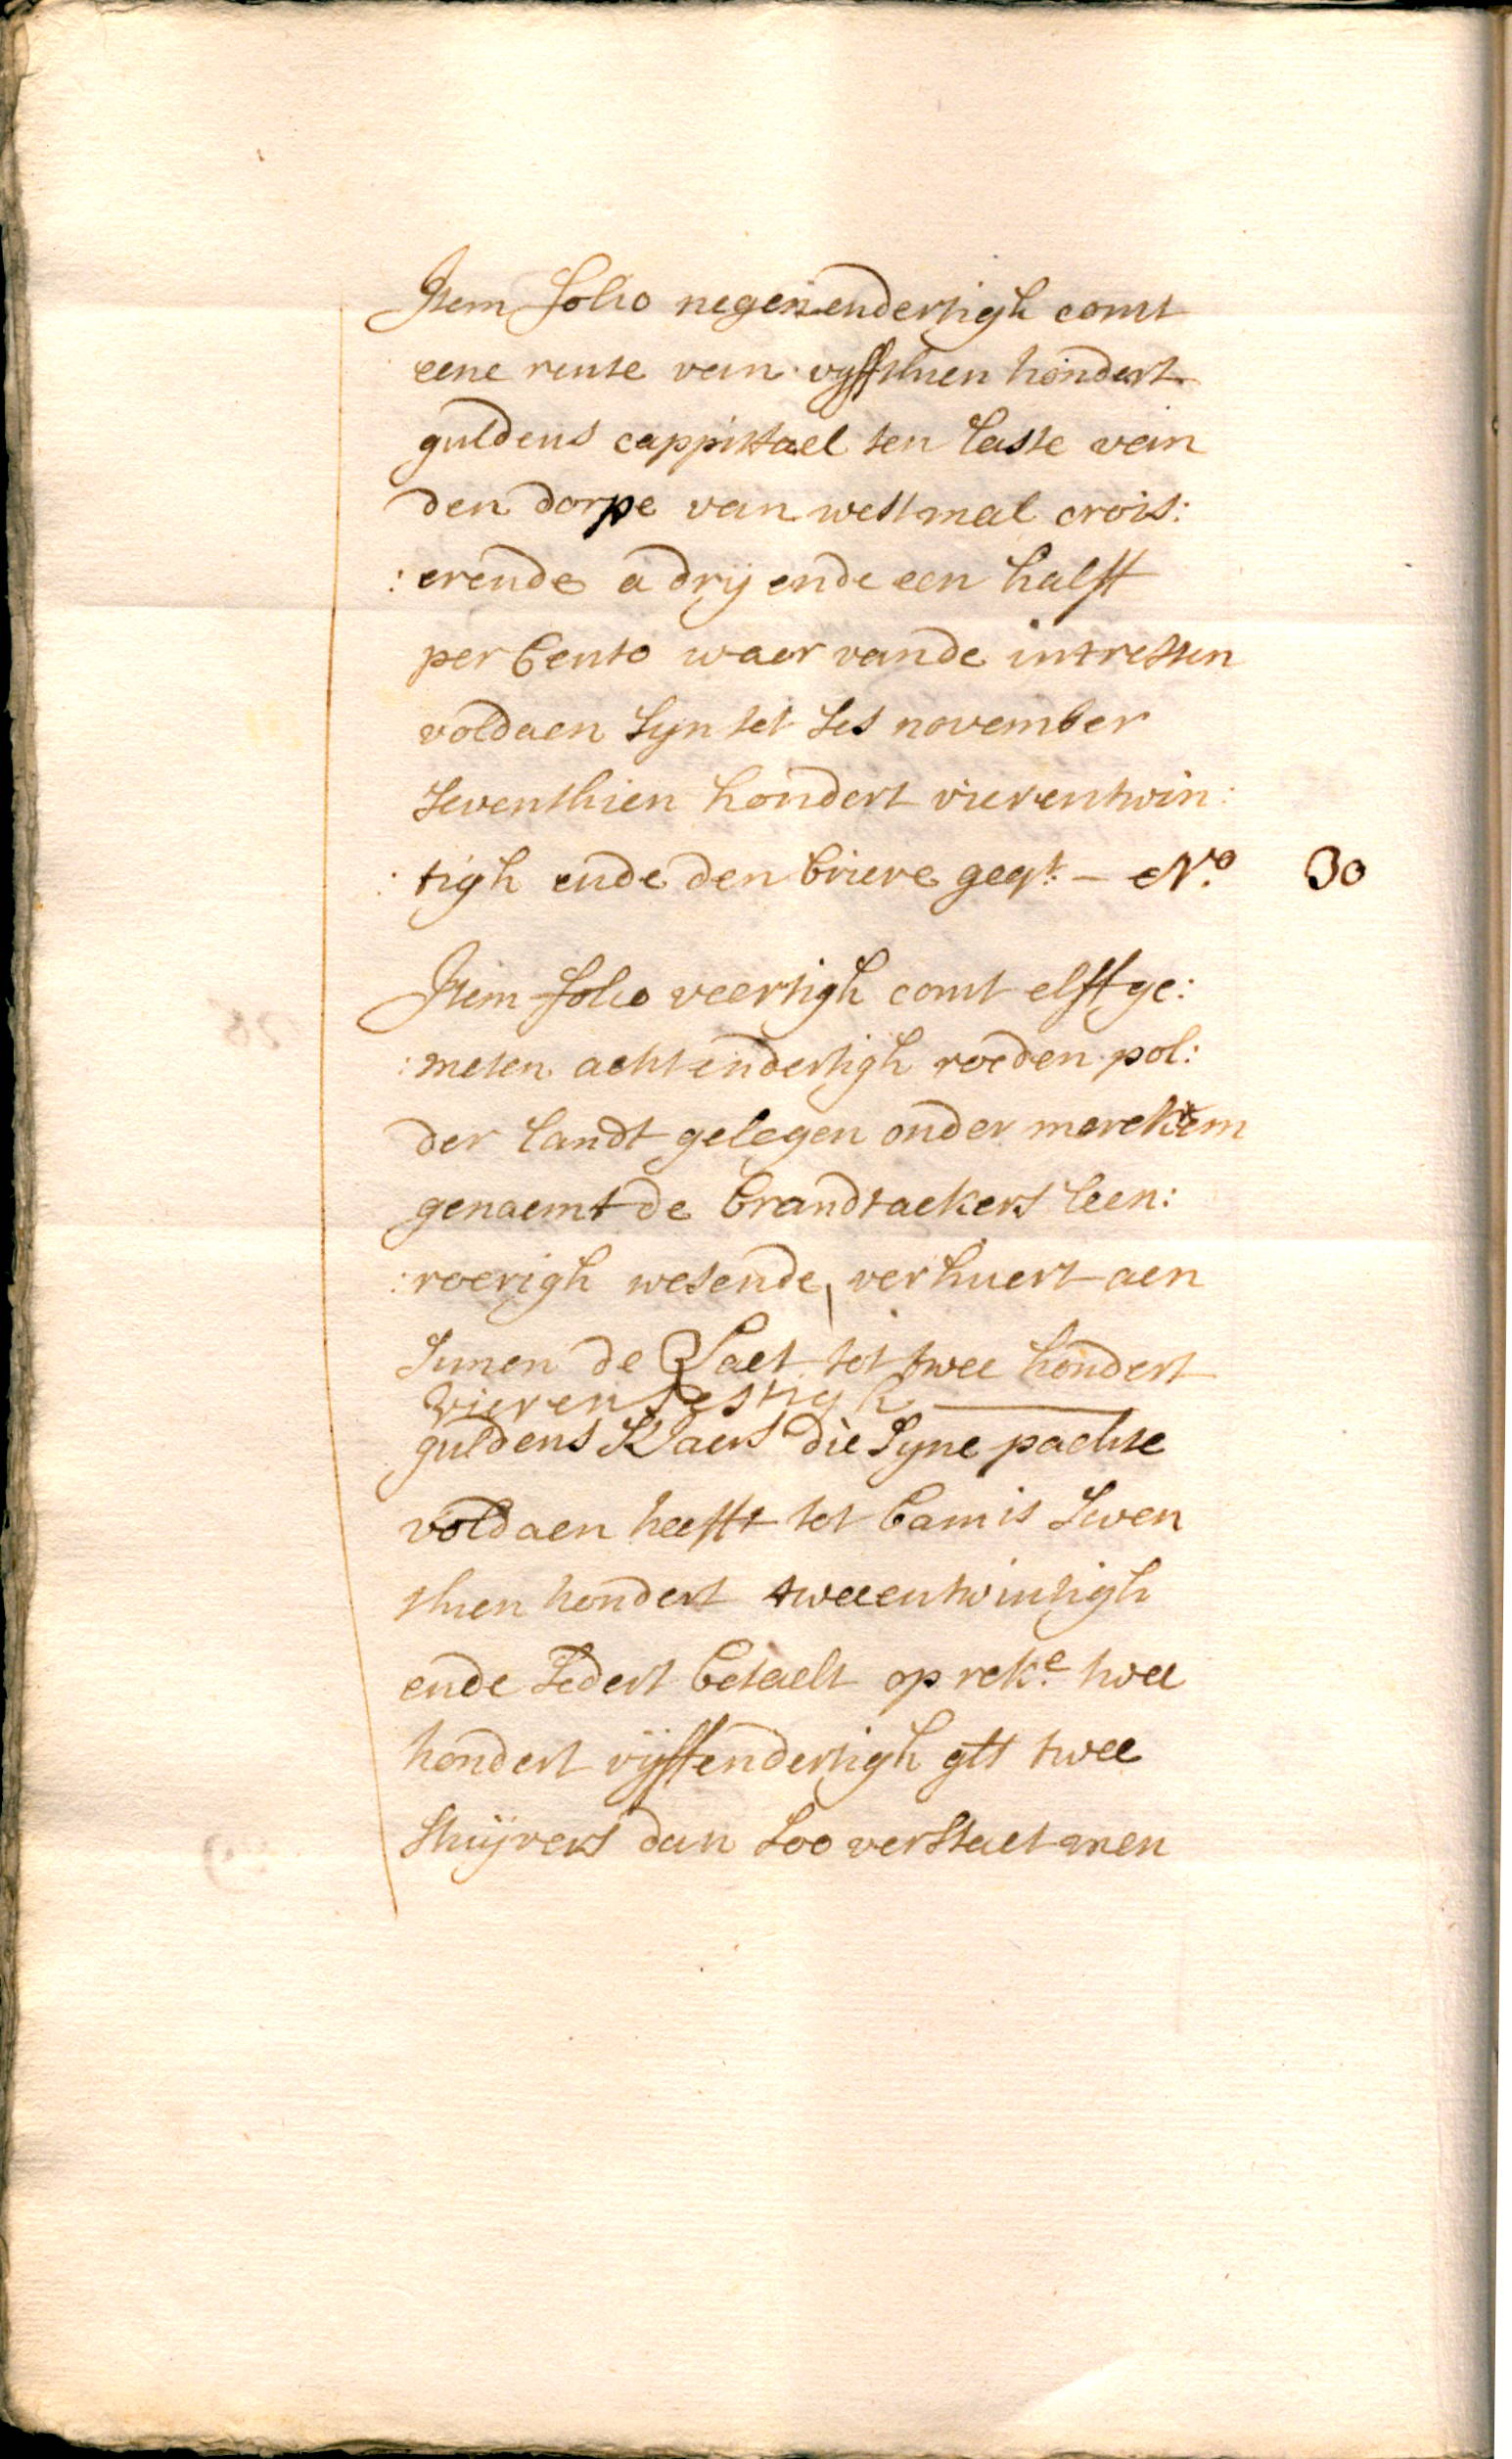 Item folio negenendertigh comt
eene rente van vyffthien hondert
guldens cappittael ten laste van
den dorpe van westmal crois:
:erende a drij ende een halff
per Cento waer vande intresten
voldaen syn tot ses november
seventhien hondert vierentwin:
:tigh ende den brieve geqt. – No. 30
Item folio veertigh comt elff ge:
:meten achtendertigh roeden pol:
der landt gelegen onder merckem
genaemt de brandtackers leen:
:roerigh wesende, verhuert aen
Simen de Laet tot twee hondert
vierensestigh
guldens Sjaers die syne pachte
voldaen heefft tot bamis seven
thien hondert tweeentwintigh
ende sedert betaelt op reke. twee
hondert vyffendertigh gls twee
stuijvers dan soo verstaet men